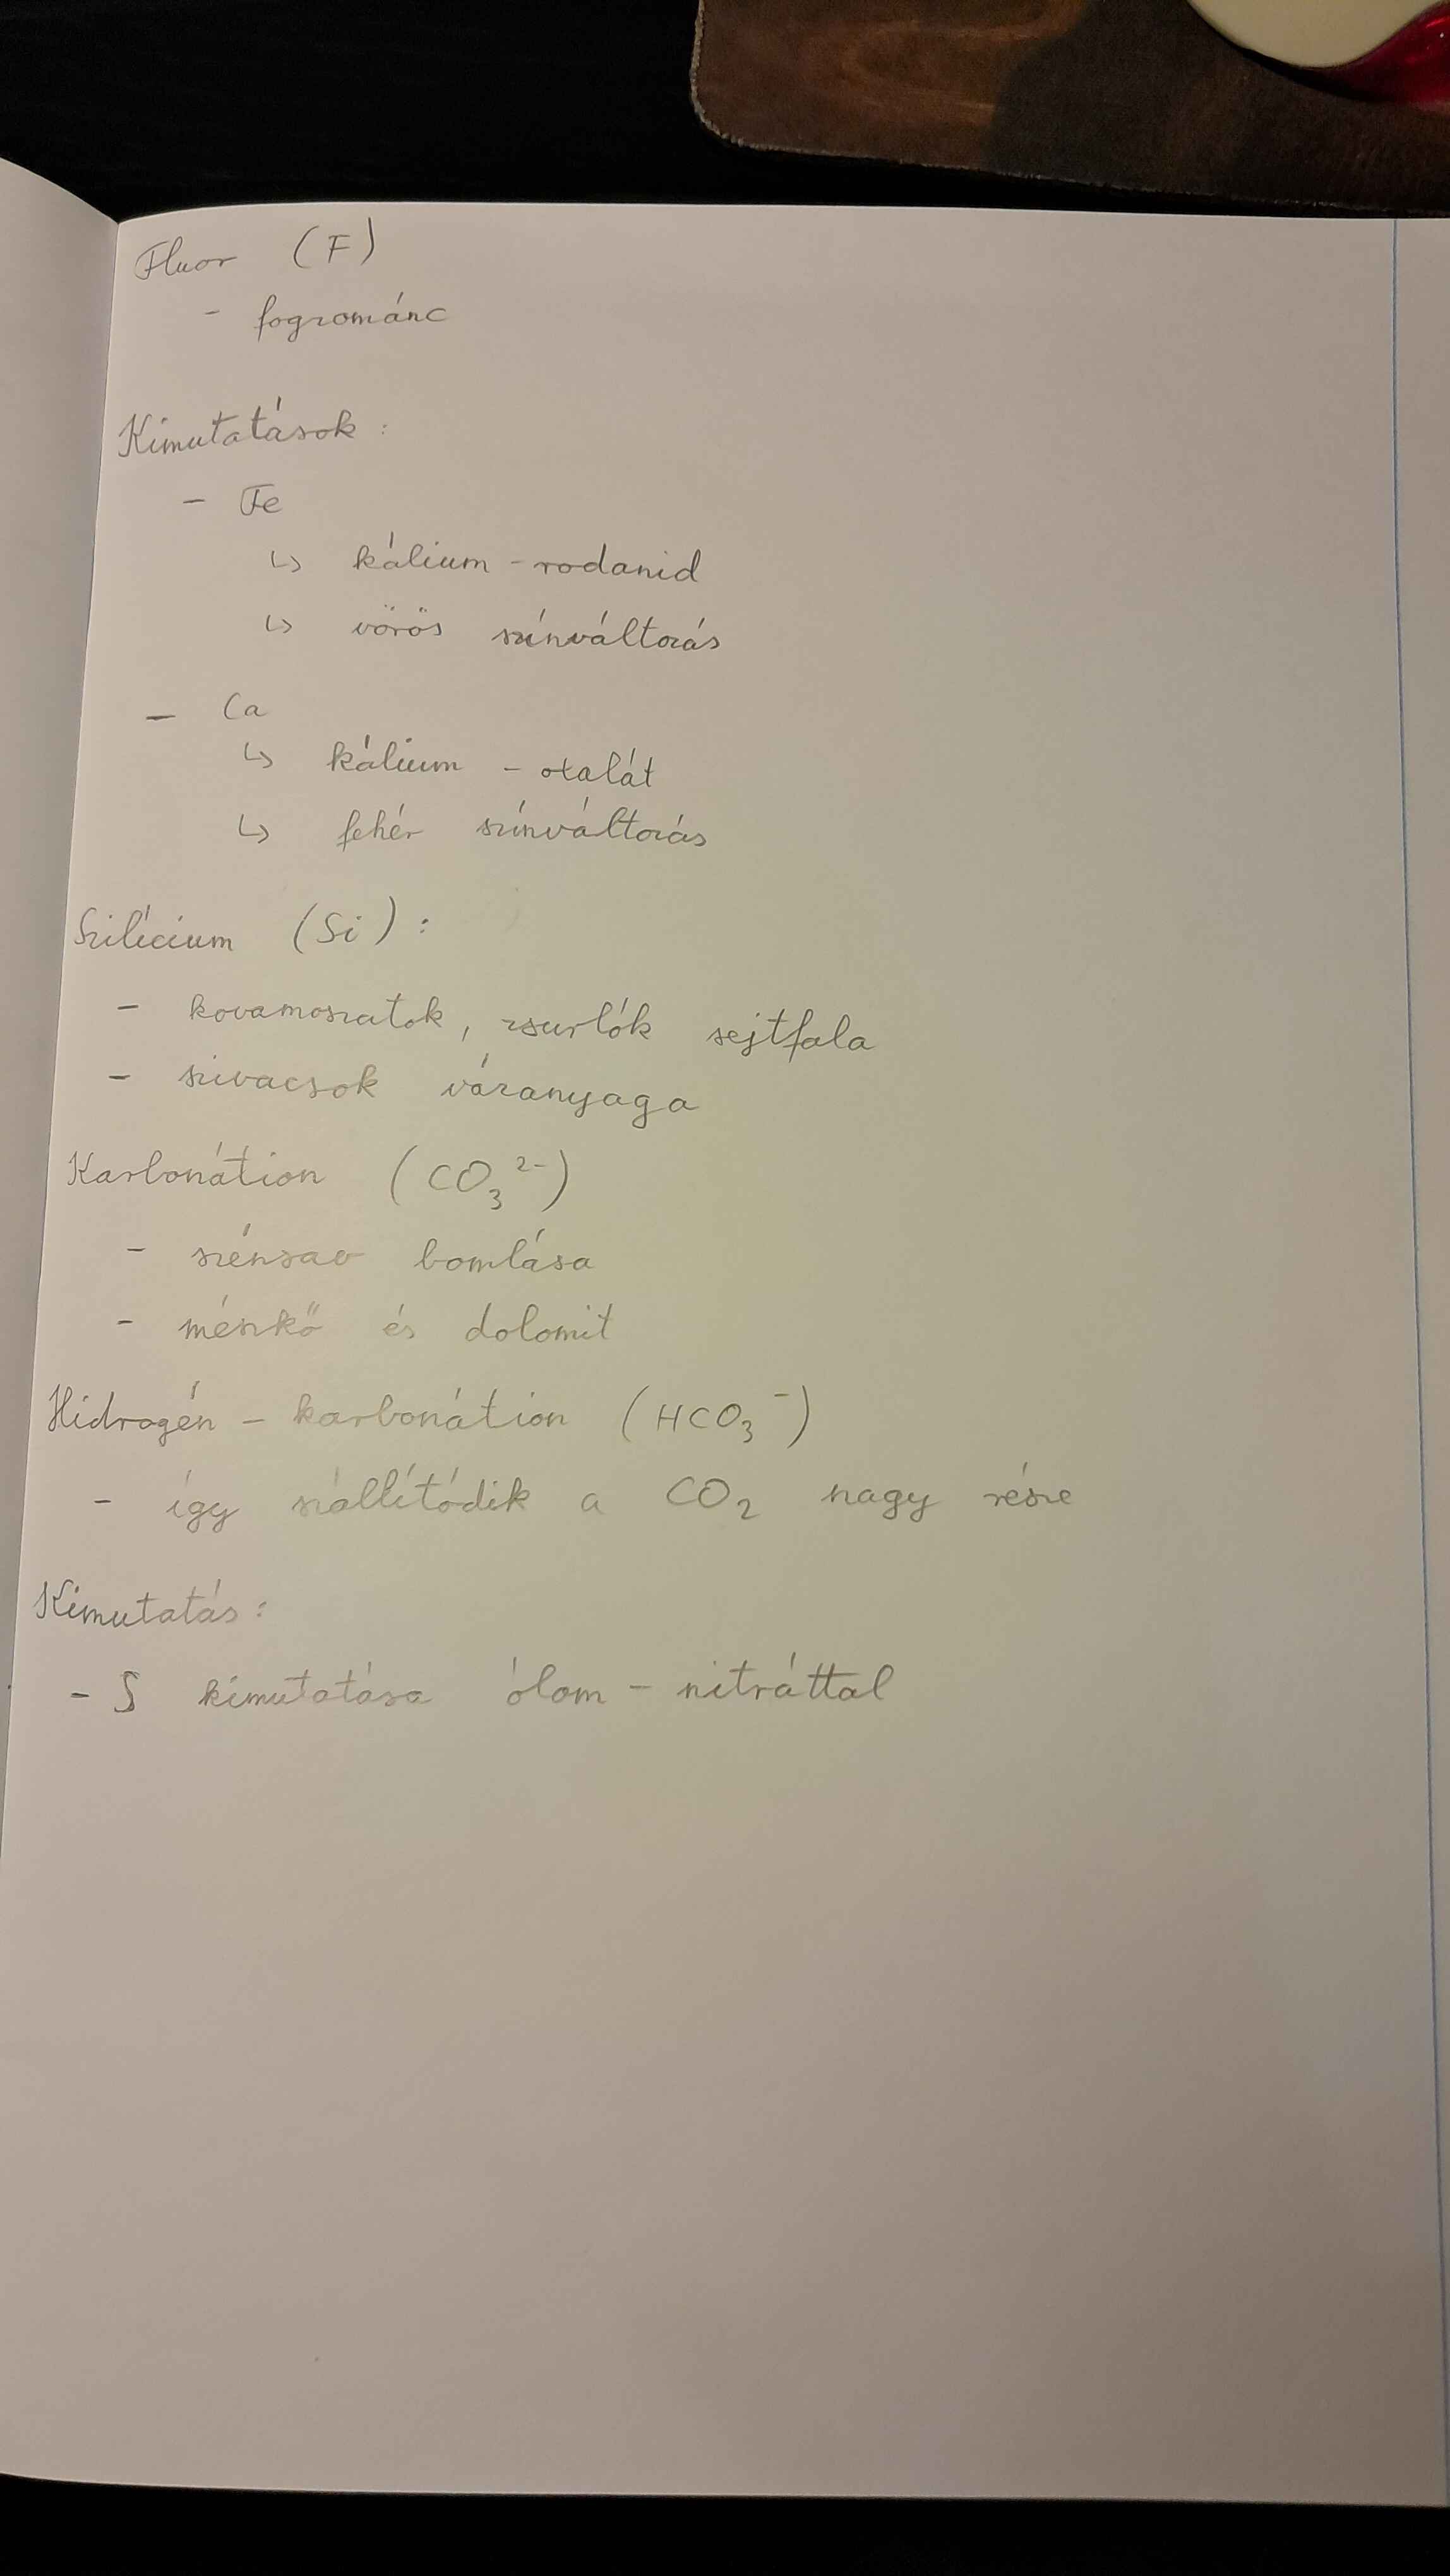 Fluor (F)
- fogzománc
Kimutatások:
- Fe
↳ kálium-rodanid
↳ vörös színváltozás
- Ca
↳ kálium - oxalát
↳ fehér színváltozás
Szilícium (Si):
- kovamoszatok, zsurlók sejtfala
- szivacsok váranyaga
Karbonátion (CO₃²⁻)
- szénsav bomlása
- mészkő és dolomit
Hidrogén - karbonátion (HCO₃⁻)
- így szállítódik a CO₂ nagy része
Kimutatás:
- S kimutatása ólom - nitráttal